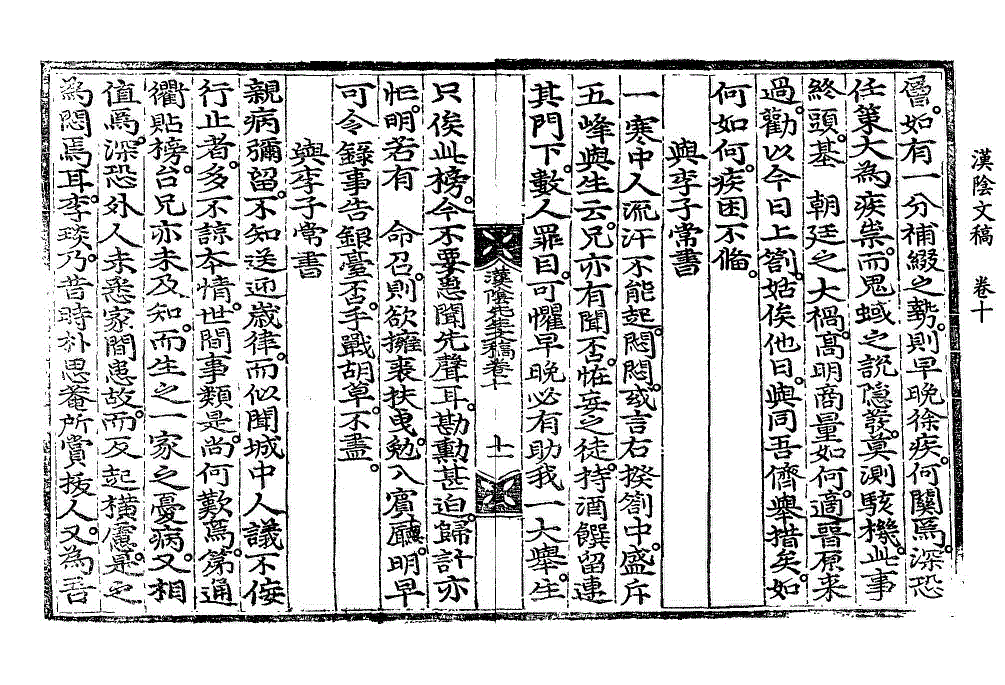 漢陰文稿 卷十
層。如有一分補綴之勢。則早晩徐疾。何關焉。深恐
任策大為疾祟。而鬼蜮之說隱發。莫測駭機。此事
終頭。基 朝廷之大禍。高明商量如何。適晉原來
過。勸以今日上箚。姑俟他日。與同吾儕擧措矣。如
何如何。疾困不備。
與李子常書
一寒中人。流汗不能起。悶悶。或言右揆箚中。盛斥
五峰與生云。兄亦有聞否。恠妄之徒。持酒饌留連
其門下。數人罪目。可懼。早晩必有助我一大擧。生
只俟此榜。今不要惠聞先聲耳。勘勳甚迫。歸計亦
忙。明若有 命召。則欲擁裘扶曳。勉入賓廳。明早
可令錄事告銀臺否。手戰胡草。不盡。
與李子常書
親病彌留。不知送迎歲律。而似聞城中人議不佞
行止者。多不諒本情。世間事類是。尙何歎焉。第通
衢貼榜。台兄亦未及知。而生之一家之憂病。又相
値焉。深恐外人未悉家間患故。而反起橫慮。是之
為悶焉耳。李琰。乃昔時朴思菴所賞拔人。又為吾
漢陰先生文稿卷十
十一